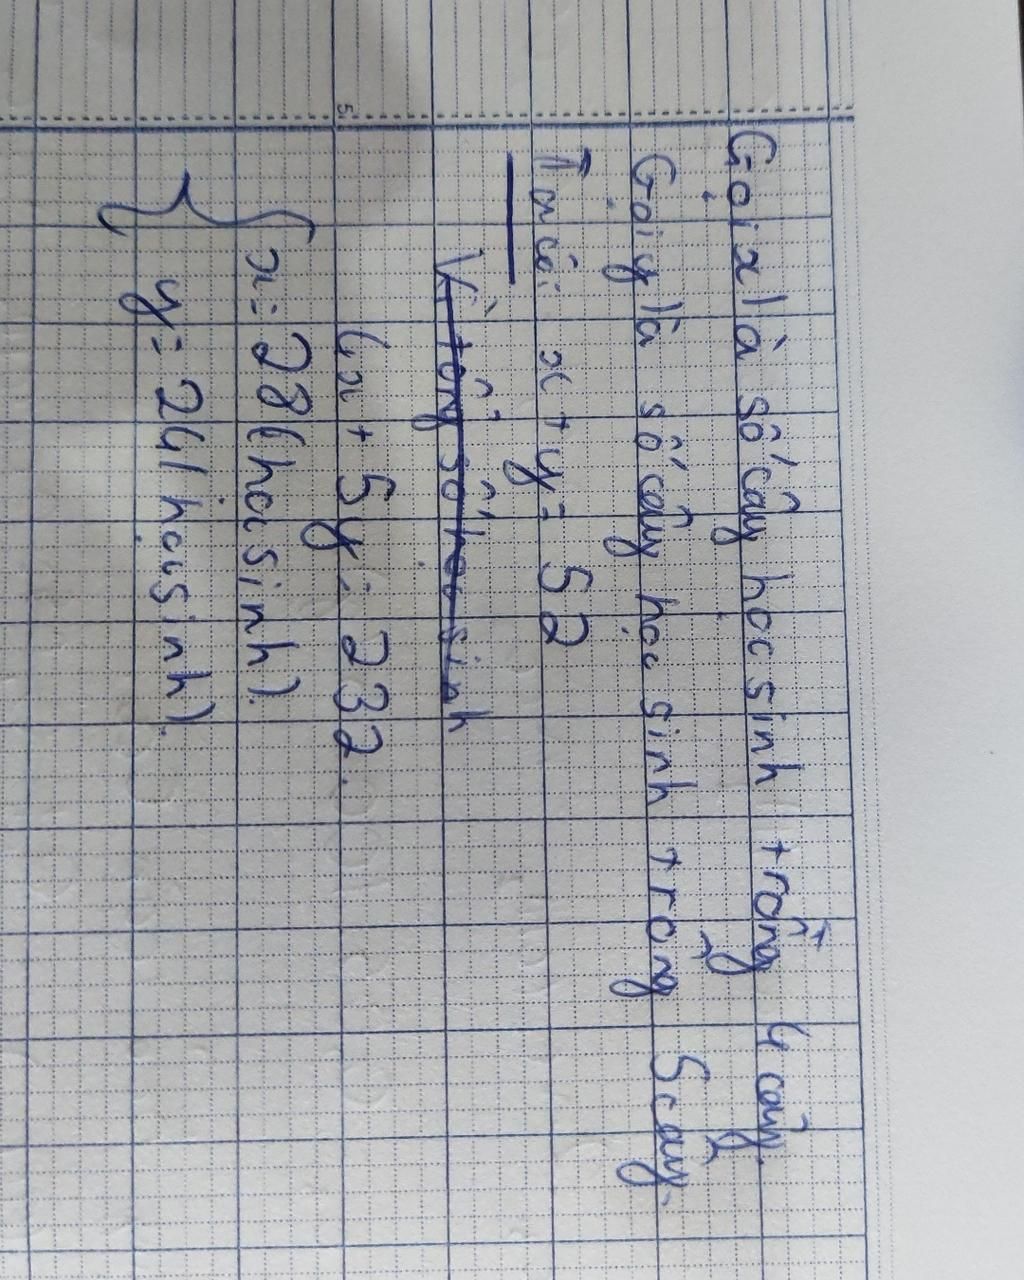 Gọi x là số cây học sinh trồng 4 cây.
Gọi y là số cây học sinh trồng 5 cây.
Ta có: x + y = 52
Vì tổng số học sinh
4x + 5y = 232.
{ x = 28 (học sinh).
y = 24 (học sinh).
5